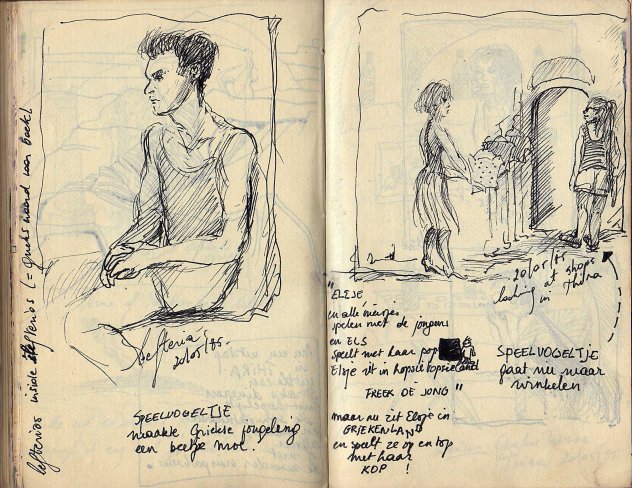 lefterios inside lefterios (= Grieks woord voor boek!
Lefterios
20/05/85.
SPEELVOGELTJE
maakte Griekse jongeling
een beetje moe.
20/05/85
looking at shops
in Thira
"ELSJE
en alle meisjes
spelen met de jongens
en ELS
speelt met haar pop
Elsje zit in hopsietopsieland
FREEK DE JONG"
maar nu zit Elsje in
GRIEKENLAND
en speelt ze op en top
met haar
KOP !
SPEELVOGELTJE
gaat nu maar
winkelen